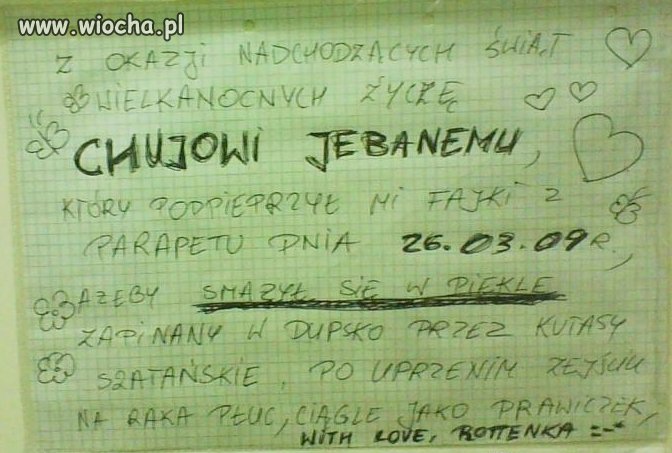 www.wiocha.pl
Z OKAZJI NADCHODZĄCYCH ŚWIĄT
WIELKANOCNYCH ŻYCZĘ
CHUJOWI JEBANEMU,
KTÓRY PODPIEPRZYŁ MI FAJKI Z
PARAPETU DNIA 26.03.09R.,
AŻEBY SMAŻYŁ SIĘ W PIEKLE
ZAPINANY W DUPSKO PRZEZ KUTASY
SZATAŃSKIE, PO UPRZENIM ZEJŚCIU
NA RAKA PŁUC, CIĄGLE JAKO PRAWICZEK,
WITH LOVE, ROTTENKA =-*